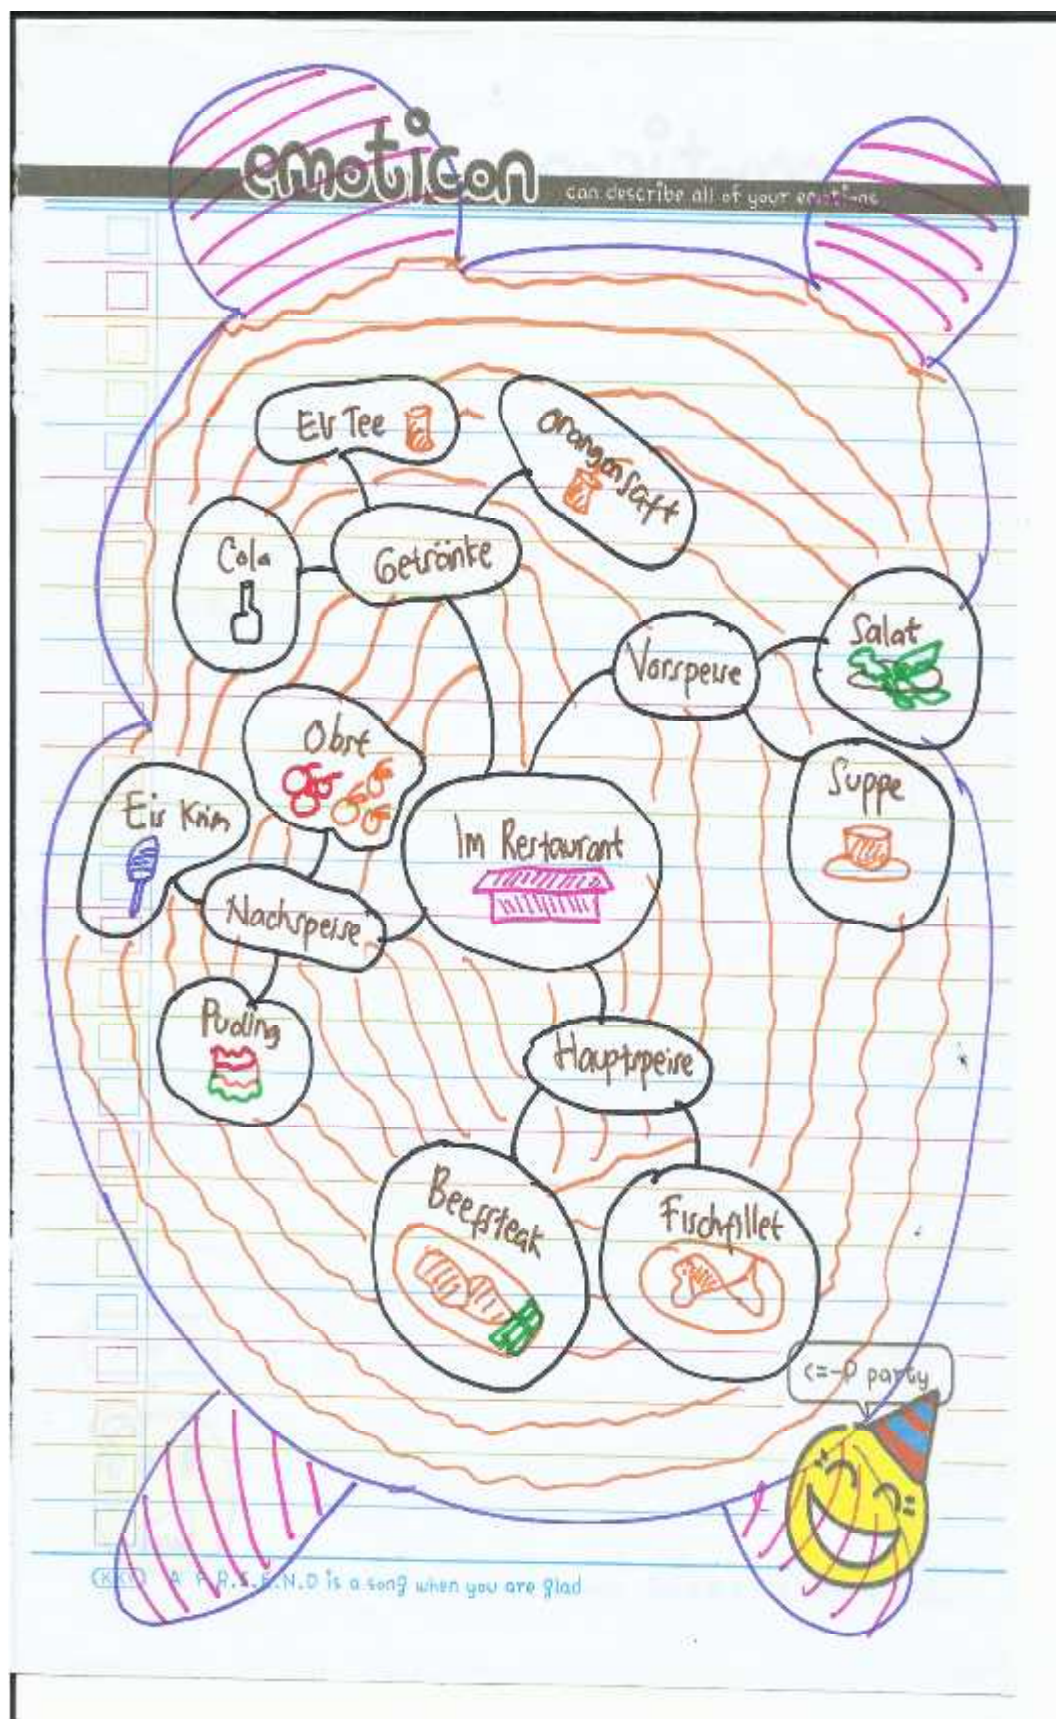 emoticon
can describe all of your emotions
Eis Tee
Orangensaft
Cola
Getränke
Salat
Vorspeise
Suppe
Obst
Eis Krim
Im Restaurant
Nachspeise
Puding
Hauptspeise
Beefsteak
Fischfillet
c=-P party
A F.R.I.E.N.D is a song when you are glad